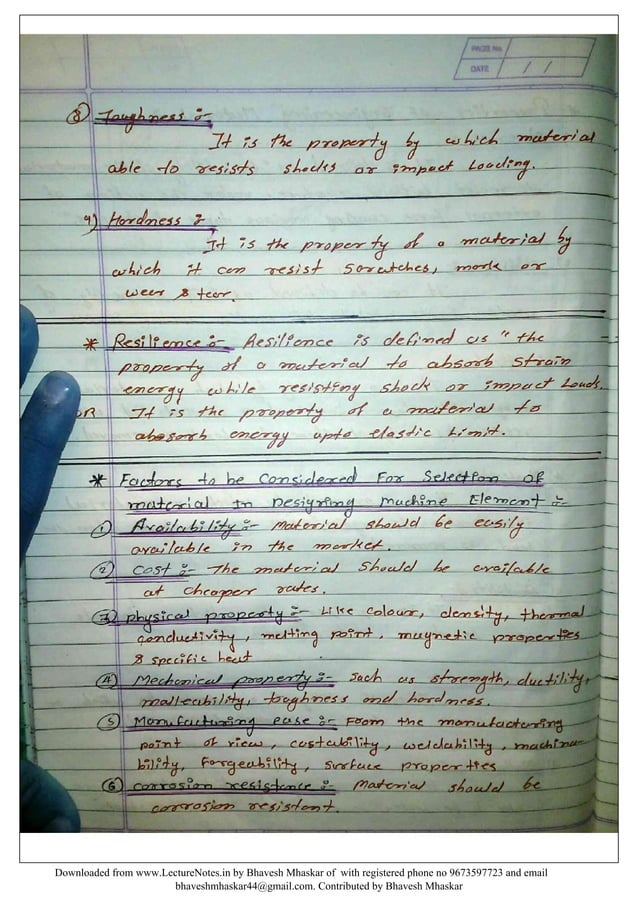 PAGE No.
DATE / /
8) Toughness :-
It is the property by which material
able to resists shocks or impact Loading.
9) Hardness :-
It is the property of a material by
which it can resist scratches, mark or
wear & tear.
* Resilience :- Resilience is defined as "the
property of a material to absorb strain
energy while resisting shock or impact Loads.
OR It is the property of a material to
absorb energy upto elastic Limit.
* Factors to be Considered For Selection of
material In Designing Machine Element :-
① Availability :- Material should be easily
available in the market.
② Cost :- The material should be available
at cheaper rates.
③ physical property :- Like colour, density, thermal
conductivity, melting point, magnetic properties
& specific heat.
④ Mechanical property :- Such as strength, ductility,
malleability, toughness and hardness.
⑤ Manufacturing ease :- From the manufacturing
point of view, castability, weldability, machina-
bility, Forgeability, surface properties
⑥ corrosion resistance :- Material should be
corrosion resistant.
Downloaded from www.LectureNotes.in by Bhavesh Mhaskar of with registered phone no 9673597723 and email
bhaveshmhaskar44@gmail.com. Contributed by Bhavesh Mhaskar